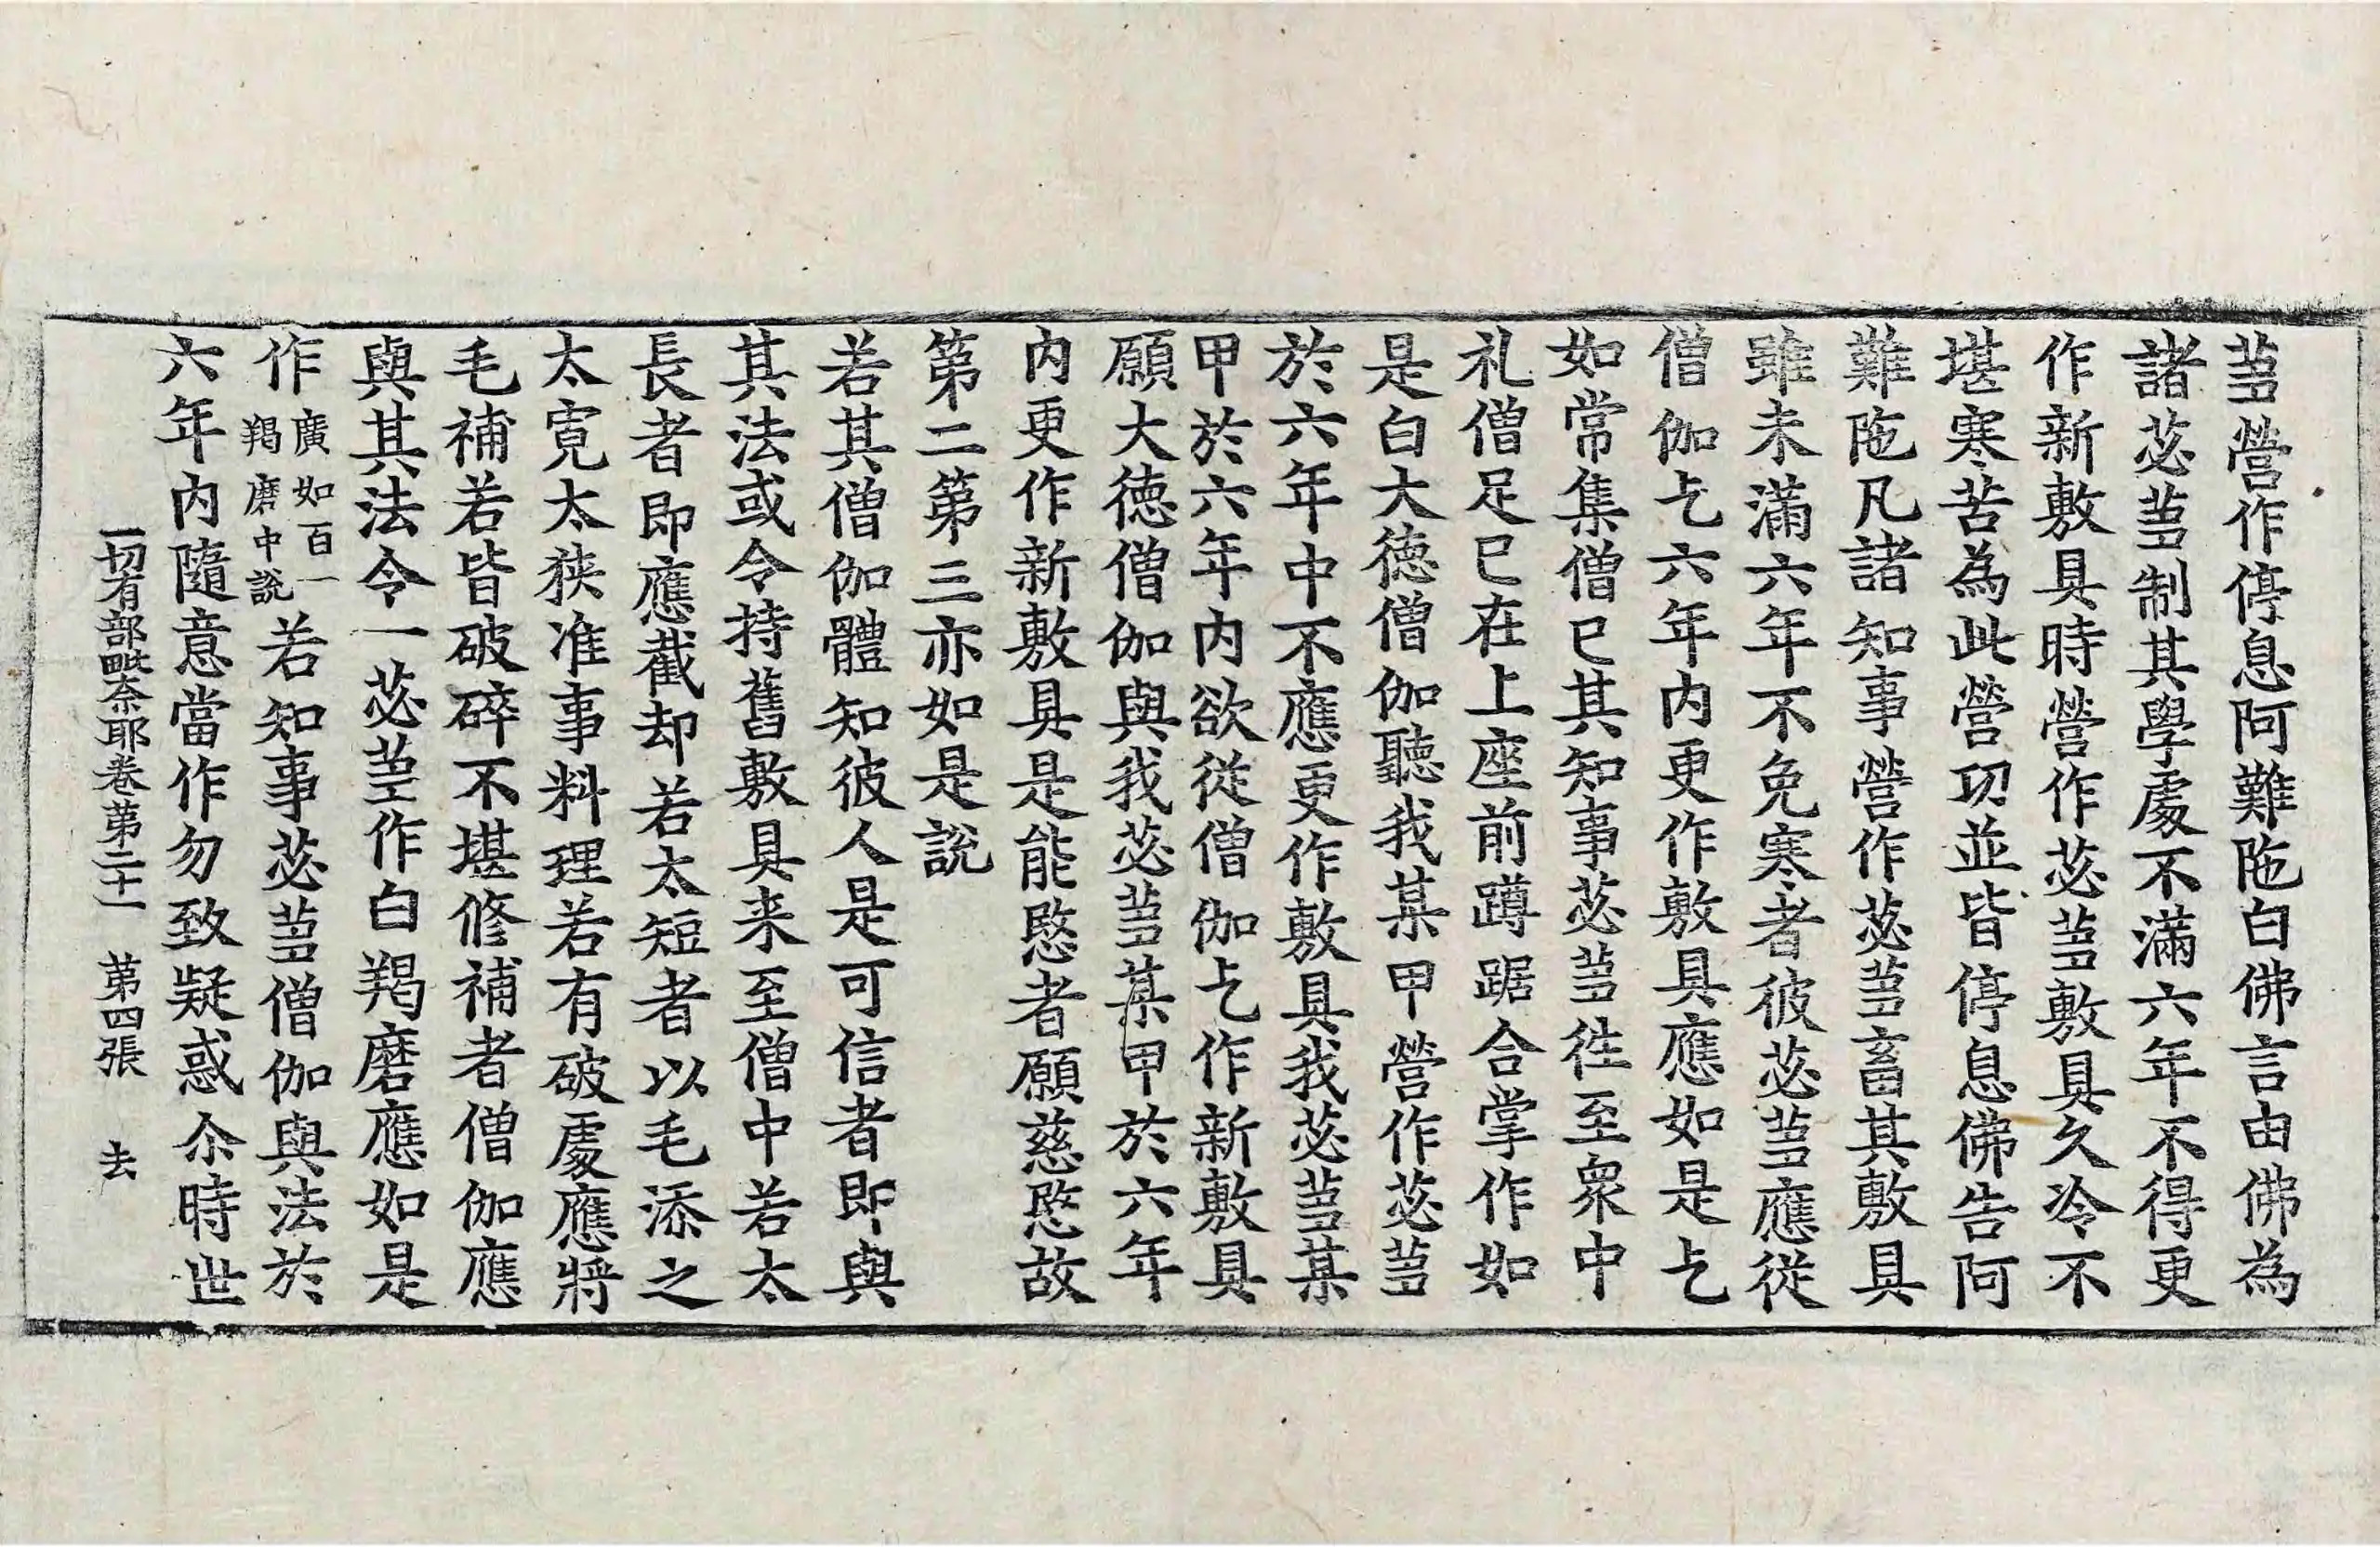 蒭營作停息阿難陁白佛言由佛為
諸苾蒭制其學處不滿六年不得更
作新敷具時營作苾蒭敷具久冷不
堪寒苦為此營㓛並皆停息佛告阿
難陁凡諸知事營作苾蒭畜其敷具
雖未滿六年不免寒者彼苾蒭應從
僧伽乞六年内更作敷具應如是乞
如常集僧已其知事苾蒭徃至衆中
礼僧足已在上座前蹲踞合掌作如
是白大德僧伽聽我某甲營作苾蒭
於六年中不應更作敷具我苾蒭某
甲於六年内欲從僧伽乞作新敷具
願大德僧伽與我苾蒭某甲於六年
内更作新敷具是能愍者願慈愍故
第二第三亦如是說
若其僧伽體知彼人是可信者即與
其法或令持舊敷具来至僧中若太
長者即應截却若太短者以毛添之
太寬太狹准事料理若有破處應將
毛補若皆破碎不堪修補者僧伽應
與其法令一苾蒭作白羯磨應如是
作廣如百一羯磨中說若知事苾蒭僧伽與法於
六年内隨意當作勿致疑惑尒時世
一切有部毗奈耶卷第二十一 第四張 去